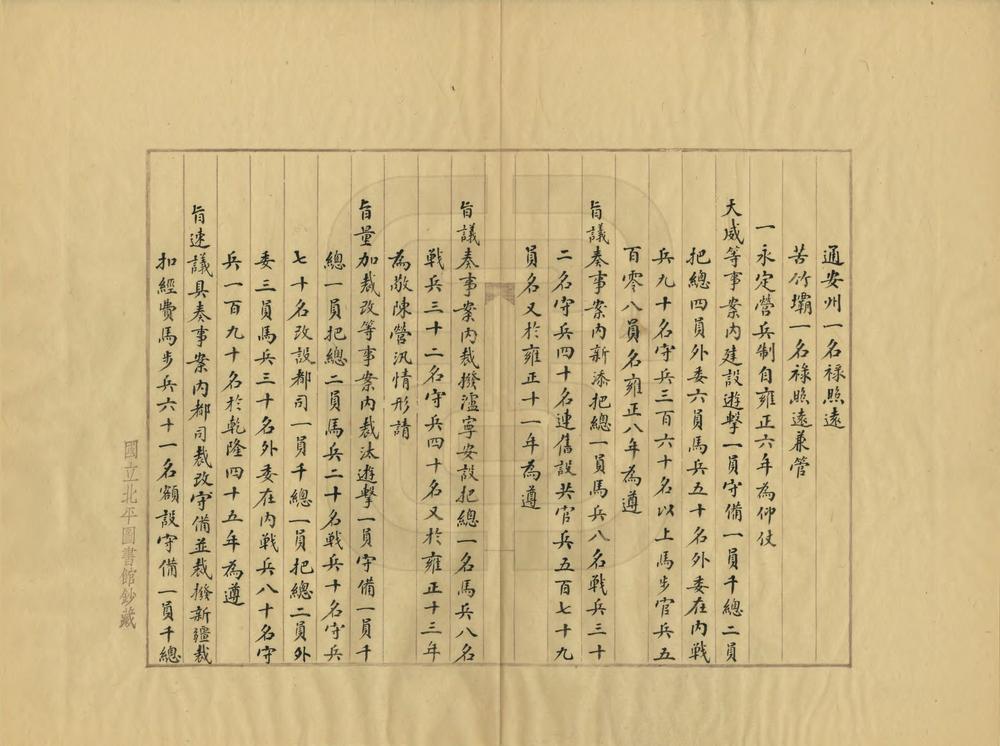 通安州一名禄照遠
苦竹壩一名禄照遠兼管
一永定營兵制自雍正六年為仰仗
天威等事案内建設遊擊一員守備一員千總二員
把總四員外委六員馬兵五十名外委在内戰
兵九十名守兵三百六十名以上馬步官兵五
百零八員名雍正八年為遵
旨議奏事案内新添把總一員馬兵八名戰兵三十
二名守兵四十名連舊設共官兵五百七十九
員名又於雍正十一年為遵
旨議奏事案内裁撥瀘寧安設把總一名馬兵八名
戰兵三十二名守兵四十名又於雍正十三年
為敬陳營汛情形請
旨量加裁改等事案内裁汰遊擊一員守備一員千
總一員把總二員馬兵二十名戰兵十名守兵
七十名改設都司一員千總一員把總二員外
委三員馬兵三十名外委在内戰兵八十名守
兵一百九十名於乾隆四十五年為遵
旨速議具奏事案内都司裁改守備並裁撥新疆裁
扣經費馬步兵六十一名額設守備一員千總
國立北平圖書館鈔藏